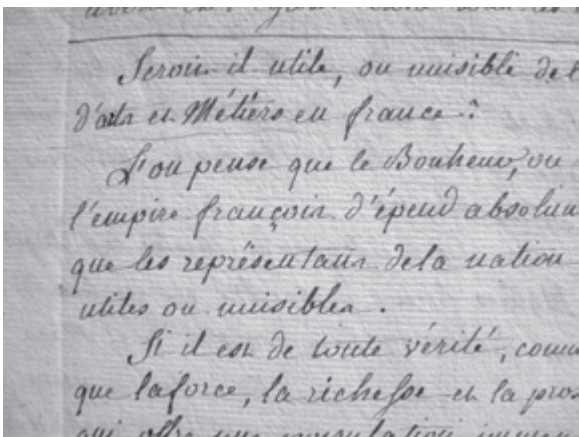 Seroit il utile, ou nuisible de
d'arts et Métiers en france ?
L'on pense que le Bonheur, ou
l'empire françois d'épend absolum
que les représentans de la nation
utiles ou nuisibles.
Si il est de toute vérité, comm
que la force, la richesse et la pros
qui offre une population immen